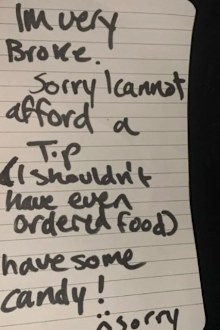 Im very
Broke.
Sorry I cannot
afford a
Tip
(I shouldn't
have even
ordered food)
have some
candy!
:( sorry